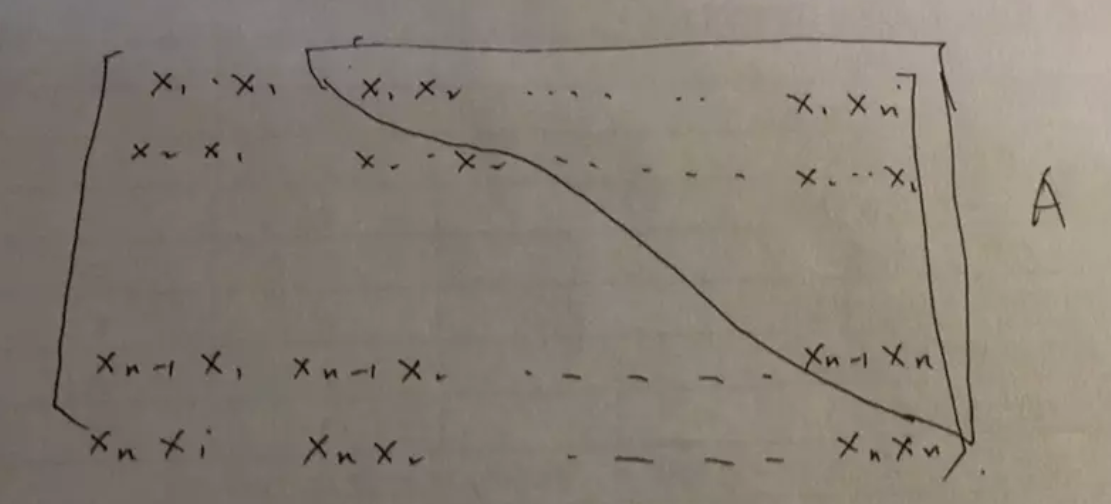 x₁·x₁ x₁x₂ ···· ·· x₁xₙ
x₂x₁ x₂·x₂ ------ x₂··xₙ A
xₙ₋₁x₁ xₙ₋₁x₂ ·---- xₙ₋₁xₙ
xₙxi xₙx₂ ·--- xₙxₙ